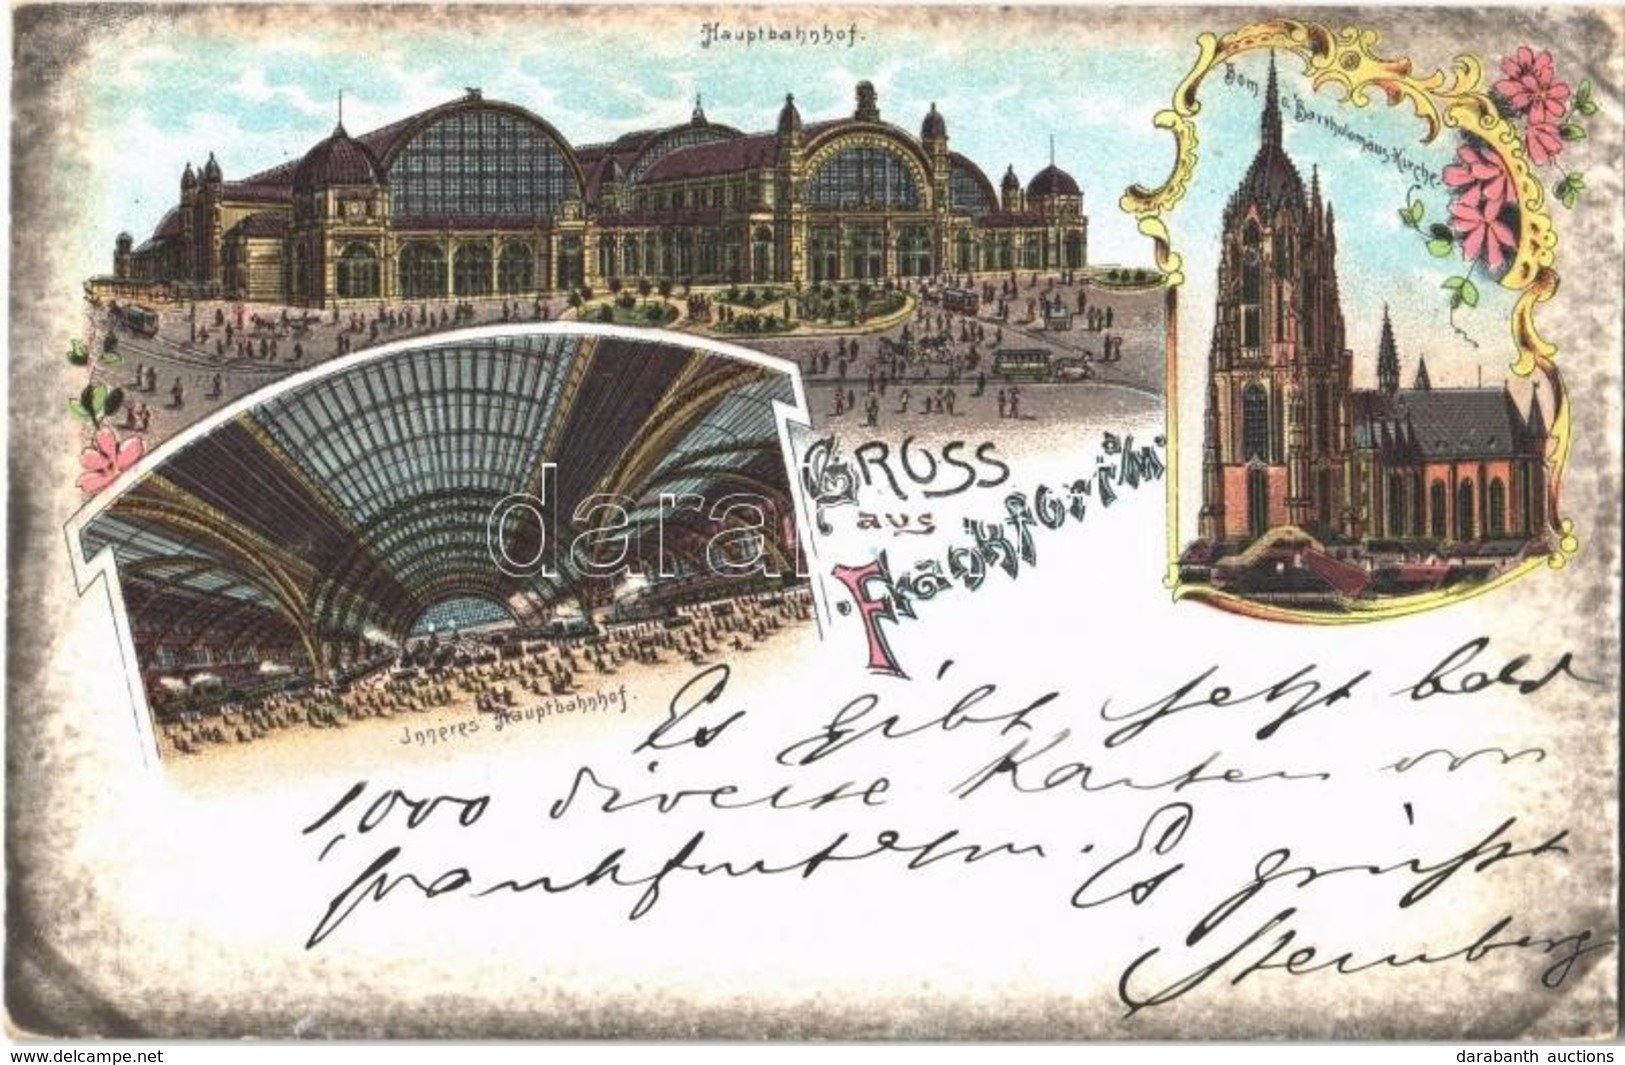 Hauptbahnhof.
Dom o. Bartholomäus-Kirche.
GRUSS
aus
Frankfurt a/M
Inneres Hauptbahnhof.
Es gibt jetzt bald
1,000 diverse Karten von
Frankfurt a/m. Es grüßt
Sternberg
dara
www.delcampe.net
darabanth auctions